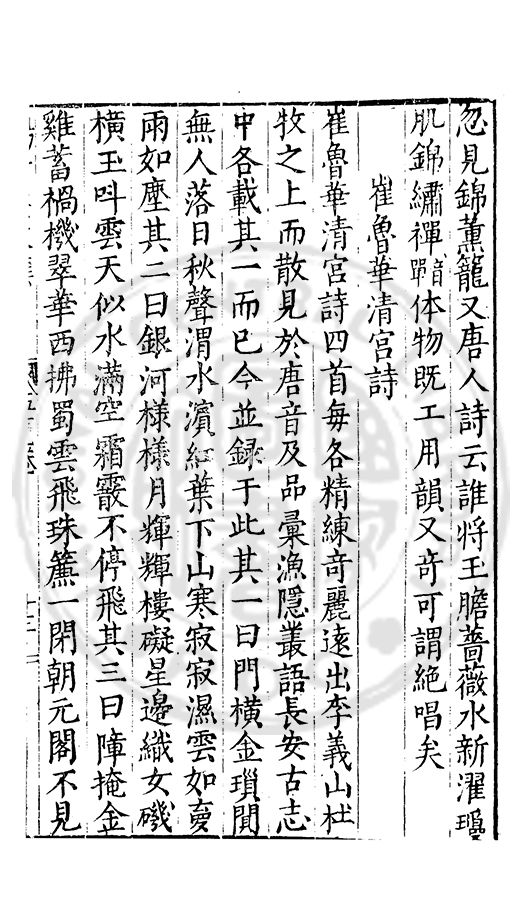 忽見錦薰籠又唐人詩云誰將玉膽薔薇水新濯瓊
肌錦繡禪音單体物既工用韻又奇可謂絶唱矣
崔魯華清宮詩
崔魯華清宮詩四首每各精練奇麗遠出李義山杜
牧之上而散見於唐音及品彙漁隱叢語長安古志
中各載其一而已今並録于此其一曰門橫金瑣闃
無人落日秋聲渭水濵紅葉下山寒寂寂濕雲如夢
雨如塵其二曰銀河樣樣月輝輝樓礙星邊織女磯
橫玉呌雲天似水滿空霜霰不停飛其三曰障掩金
雞蓄禍機翠華西拂蜀雲飛珠簾一閉朝元閣不見